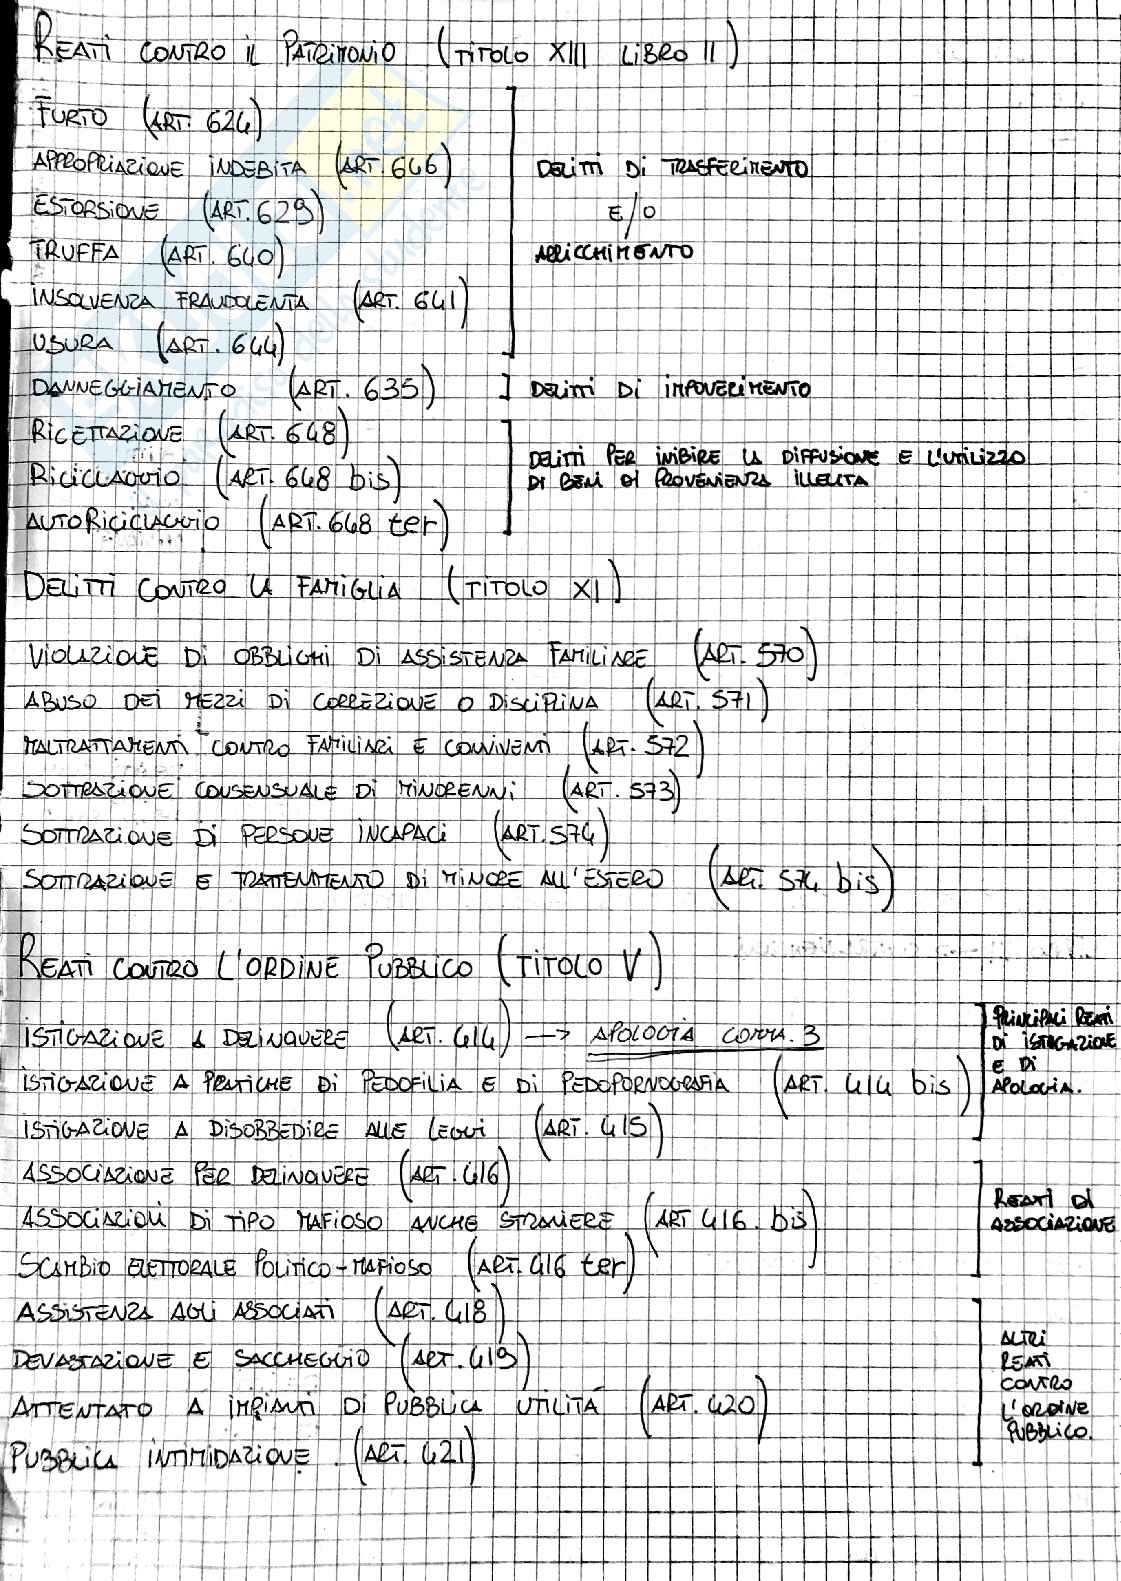 REATI CONTRO IL PATRIMONIO (TITOLO XIII LIBRO II)
FURTO (ART. 624)
APPROPRIAZIONE INDEBITA (ART. 646)
ESTORSIONE (ART. 629)
TRUFFA (ART. 640)
INSOLVENZA FRAUDOLENTA (ART. 641)
USURA (ART. 644)
DELITTI DI TRASFERIMENTO
E/O
ARRICCHIMENTO
DANNEGGIAMENTO (ART. 635)
DELITTI DI IMPOVERIMENTO
RICETTAZIONE (ART. 648)
RICICLAGGIO (ART. 648 bis)
AUTORICICLAGGIO (ART. 648 ter)
DELITTI PER INIBIRE LA DIFFUSIONE E L'UTILIZZO
DI BENI DI PROVENIENZA ILLECITA
DELITTI CONTRO LA FAMIGLIA (TITOLO XI)
VIOLAZIONE DI OBBLIGHI DI ASSISTENZA FAMILIARE (ART. 570)
ABUSO DEI MEZZI DI CORREZIONE O DISCIPLINA (ART. 571)
MALTRATTAMENTI CONTRO FAMILIARI E CONVIVENTI (ART. 572)
SOTTRAZIONE CONSENSUALE DI MINORENNI (ART. 573)
SOTTRAZIONE DI PERSONE INCAPACI (ART. 574)
SOTTRAZIONE E TRATTENIMENTO DI MINORE ALL'ESTERO (ART. 574 bis)
REATI CONTRO L'ORDINE PUBBLICO (TITOLO V)
ISTIGAZIONE A DELINQUERE (ART. 414) → APOLOGIA COMMA. 3
ISTIGAZIONE A PRATICHE DI PEDOFILIA E DI PEDOPORNOGRAFIA (ART. 414 bis)
ISTIGAZIONE A DISOBBEDIRE ALLE LEGGI (ART. 415)
PRINCIPALI REATI
DI ISTIGAZIONE
E DI
APOLOGIA.
ASSOCIAZIONE PER DELINQUERE (ART. 416)
ASSOCIAZIONI DI TIPO MAFIOSO ANCHE STRANIERE (ART 416. bis)
SCAMBIO ELETTORALE POLITICO-MAFIOSO (ART. 416 ter)
REATI DI
ASSOCIAZIONE
ASSISTENZA AGLI ASSOCIATI (ART. 418)
DEVASTAZIONE E SACCHEGGIO (ART. 419)
ATTENTATO A IMPIANTI DI PUBBLICA UTILITÁ (ART. 420)
PUBBLICA INTIMIDAZIONE. (ART. 421)
ALTRI
REATI
CONTRO
L'ORDINE
PUBBLICO.